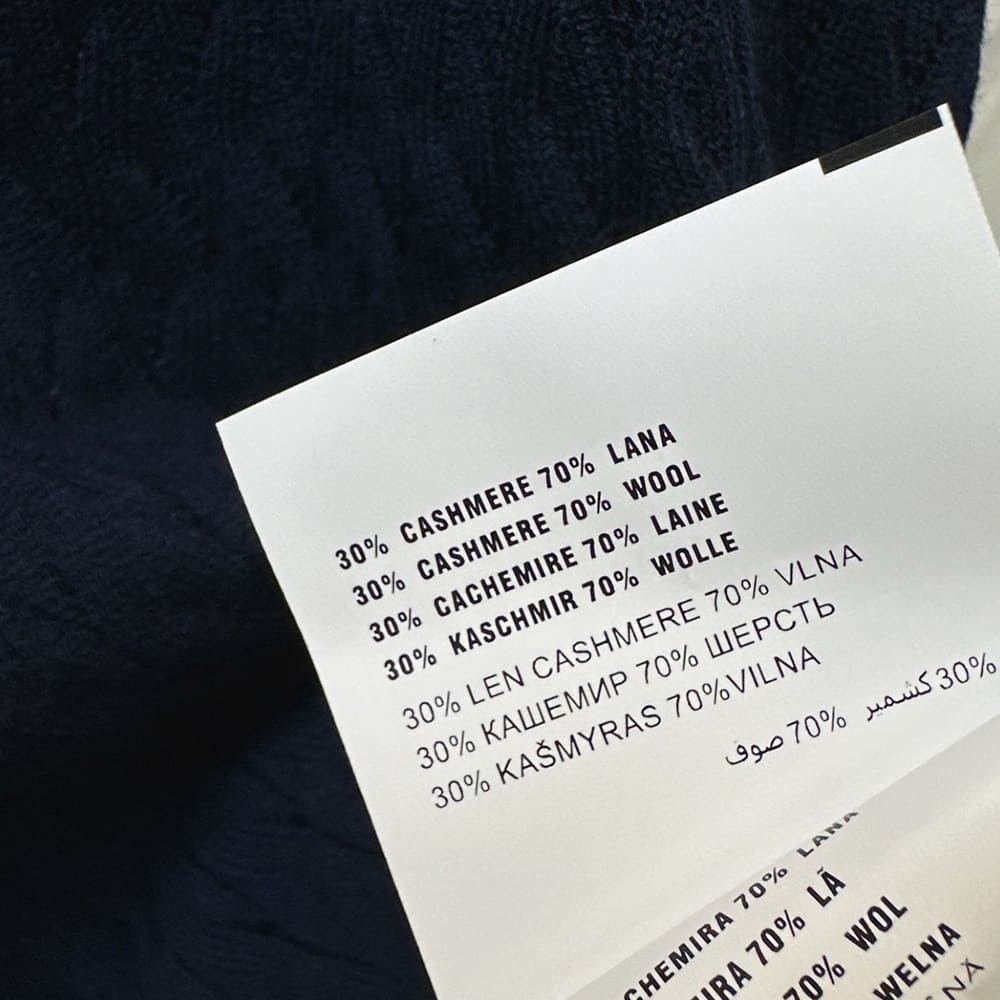 30% CASHMERE 70% LANA
30% CASHMERE 70% WOOL
30% CACHEMIRE 70% LAINE
30% KASCHMIR 70% WOLLE
30% LEN CASHMERE 70% VLNA
30% КАШЕМИР 70% ШЕРСТЬ
30% KAŠMYRAS 70%VILNA
30% كشمير 70% صوف
CHEMIRA 70% LANA
IRA 70% LÃ
70% WOL
WELNA